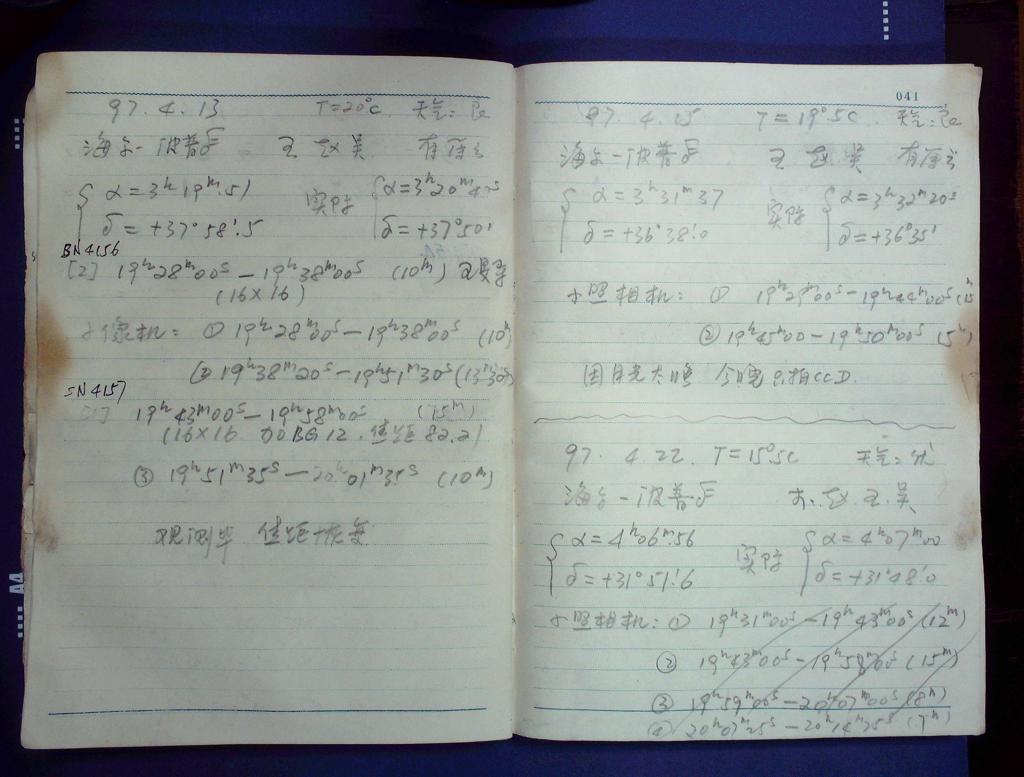 97.4.13 T=20°C 天气:良
海尔-波普 王 赵 吴
α=3ʰ19ᵐ.51 实际 α=3ʰ20ᵐ
δ=+37°58′.5 δ=+37°50′
BN4156
[2] 19ʰ28ᵐ00ˢ-19ʰ38ᵐ00ˢ (10ᵐ)
(16×16)
像机: ① 19ʰ28ᵐ00ˢ-19ʰ38ᵐ00ˢ (10ᵐ)
② 19ʰ38ᵐ20ˢ-19ʰ51ᵐ30ˢ
SN4157
[1] 19ʰ43ᵐ00ˢ-19ʰ58ᵐ00ˢ (15ᵐ)
(16×16 加BG12.焦距 82.2)
③ 19ʰ51ᵐ35ˢ-20ʰ01ᵐ35ˢ (10ᵐ)
观测毕 焦距恢复
041
97.4.15 T=19°.5C 天气:良
海尔-波普 王 赵 吴
α=3ʰ31ᵐ37 实际 α=3ʰ32ᵐ20ˢ
δ=+36°38′.0 δ=+36°35′
照相机: ① 19ʰ29ᵐ00ˢ-19ʰ44ᵐ00ˢ
② 19ʰ45ᵐ00-19ʰ50ᵐ00ˢ (5ᵐ)
因月光太强 今晚只拍CCD.
97.4.22 T=15°.5C 天气:优
海尔-波普 赵.王.吴
α=4ʰ06ᵐ.56 实际 α=4ʰ07ᵐ.00
δ=+31°51′.6 δ=+31°48′.0
照相机: ① 19ʰ31ᵐ00ˢ-19ʰ43ᵐ00ˢ (12ᵐ)
② 19ʰ43ᵐ00ˢ-19ʰ58ᵐ00ˢ (15ᵐ)
③ 19ʰ59ᵐ00ˢ-20ʰ07ᵐ00ˢ (8ᵐ)
④ 20ʰ07ᵐ25ˢ-20ʰ14ᵐ25ˢ (7ᵐ)
A4